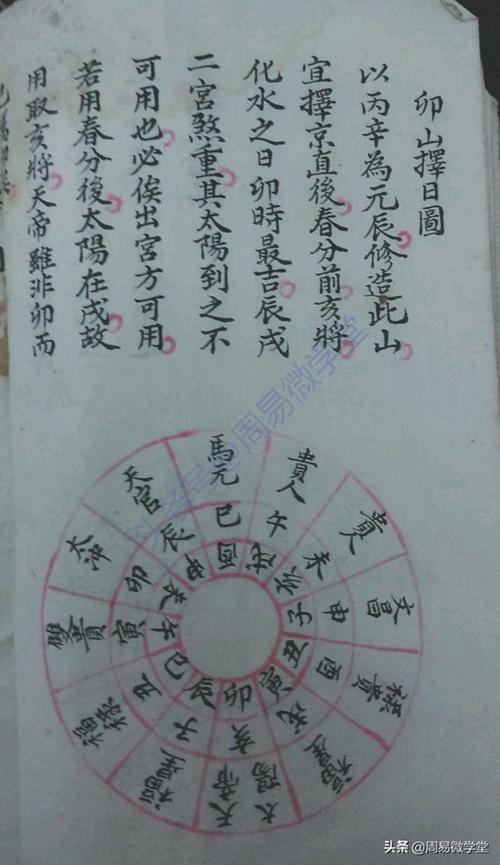 卯山擇日圖
以丙辛為元辰修造此山
宜擇京直後春分前亥將
化水之日卯時最吉辰戌
二宮煞重其太陽到之不
可用也必俟出宮方可用
若用春分後太陽在戌故
用取亥將天帝雖非卯而
馬元
貴人
貴人
文昌
祿貴
太陽
天帝
福祿
雙貴
天官
巳
午
未
申
酉
戌
亥
子
丑
寅
卯
辰
酉
戌
亥
子
丑
寅
卯
辰
巳
午
未
申
周易微学堂
头条 @周易微学堂